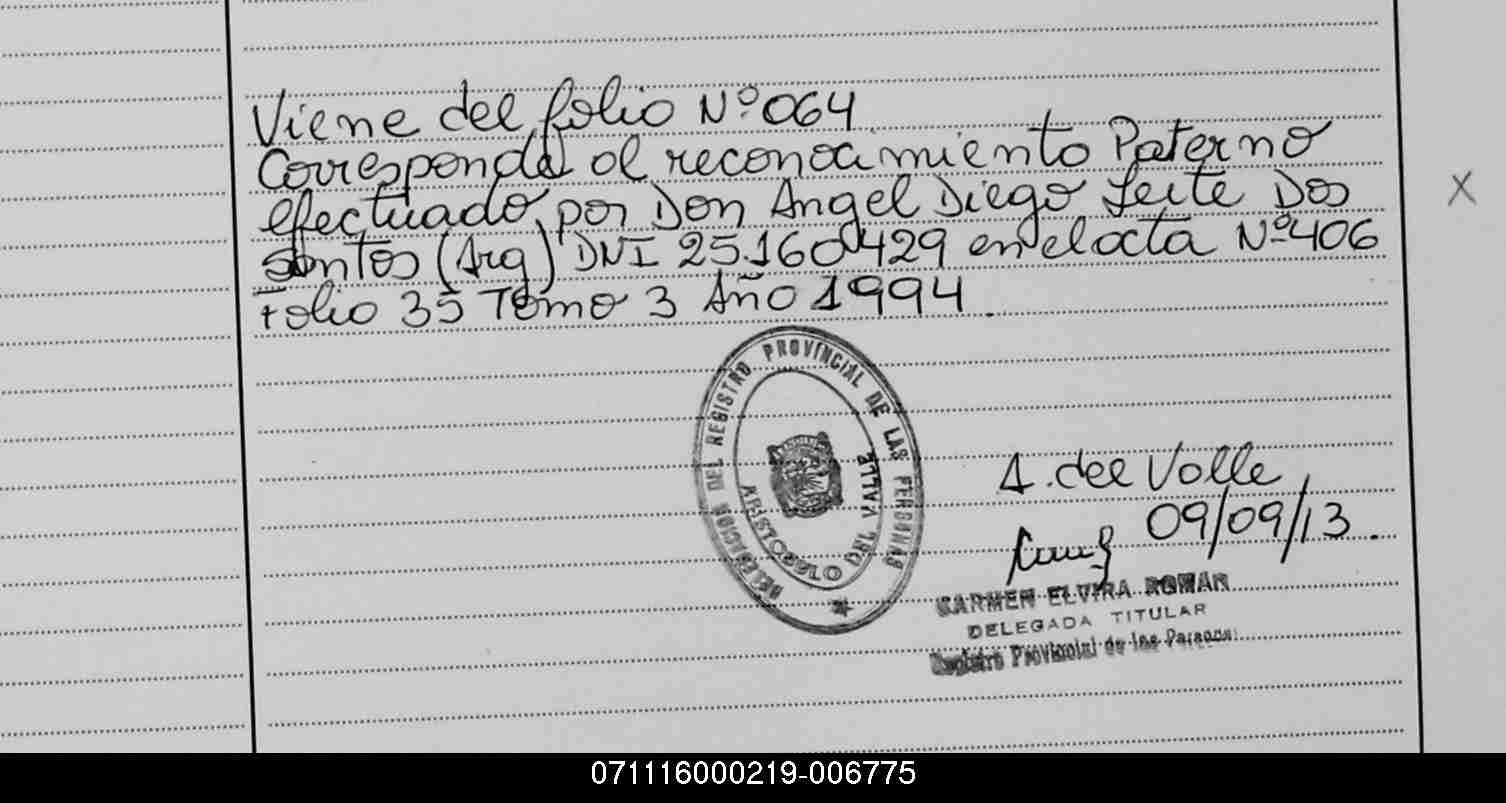 Viene del folio Nº 064
Corresponde al reconocimiento Paterno
efectuado por Don Angel Diego Leite Dos
santos (Arg) DNI 25.160.429 en el acta Nº 406
Folio 35 Tomo 3 Año 1994.
DELEGACION DEL REGISTRO PROVINCIAL DE LAS PERSONAS
ARISTOBULO DEL VALLE
A. del Valle
09/09/13.
CARMEN ELVIRA ROMAN
DELEGADA TITULAR
Registro Provincial de las Personas
X
071116000219-006775